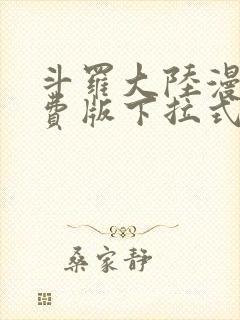 斗羅大陸漫
費版下拉式
桑家靜